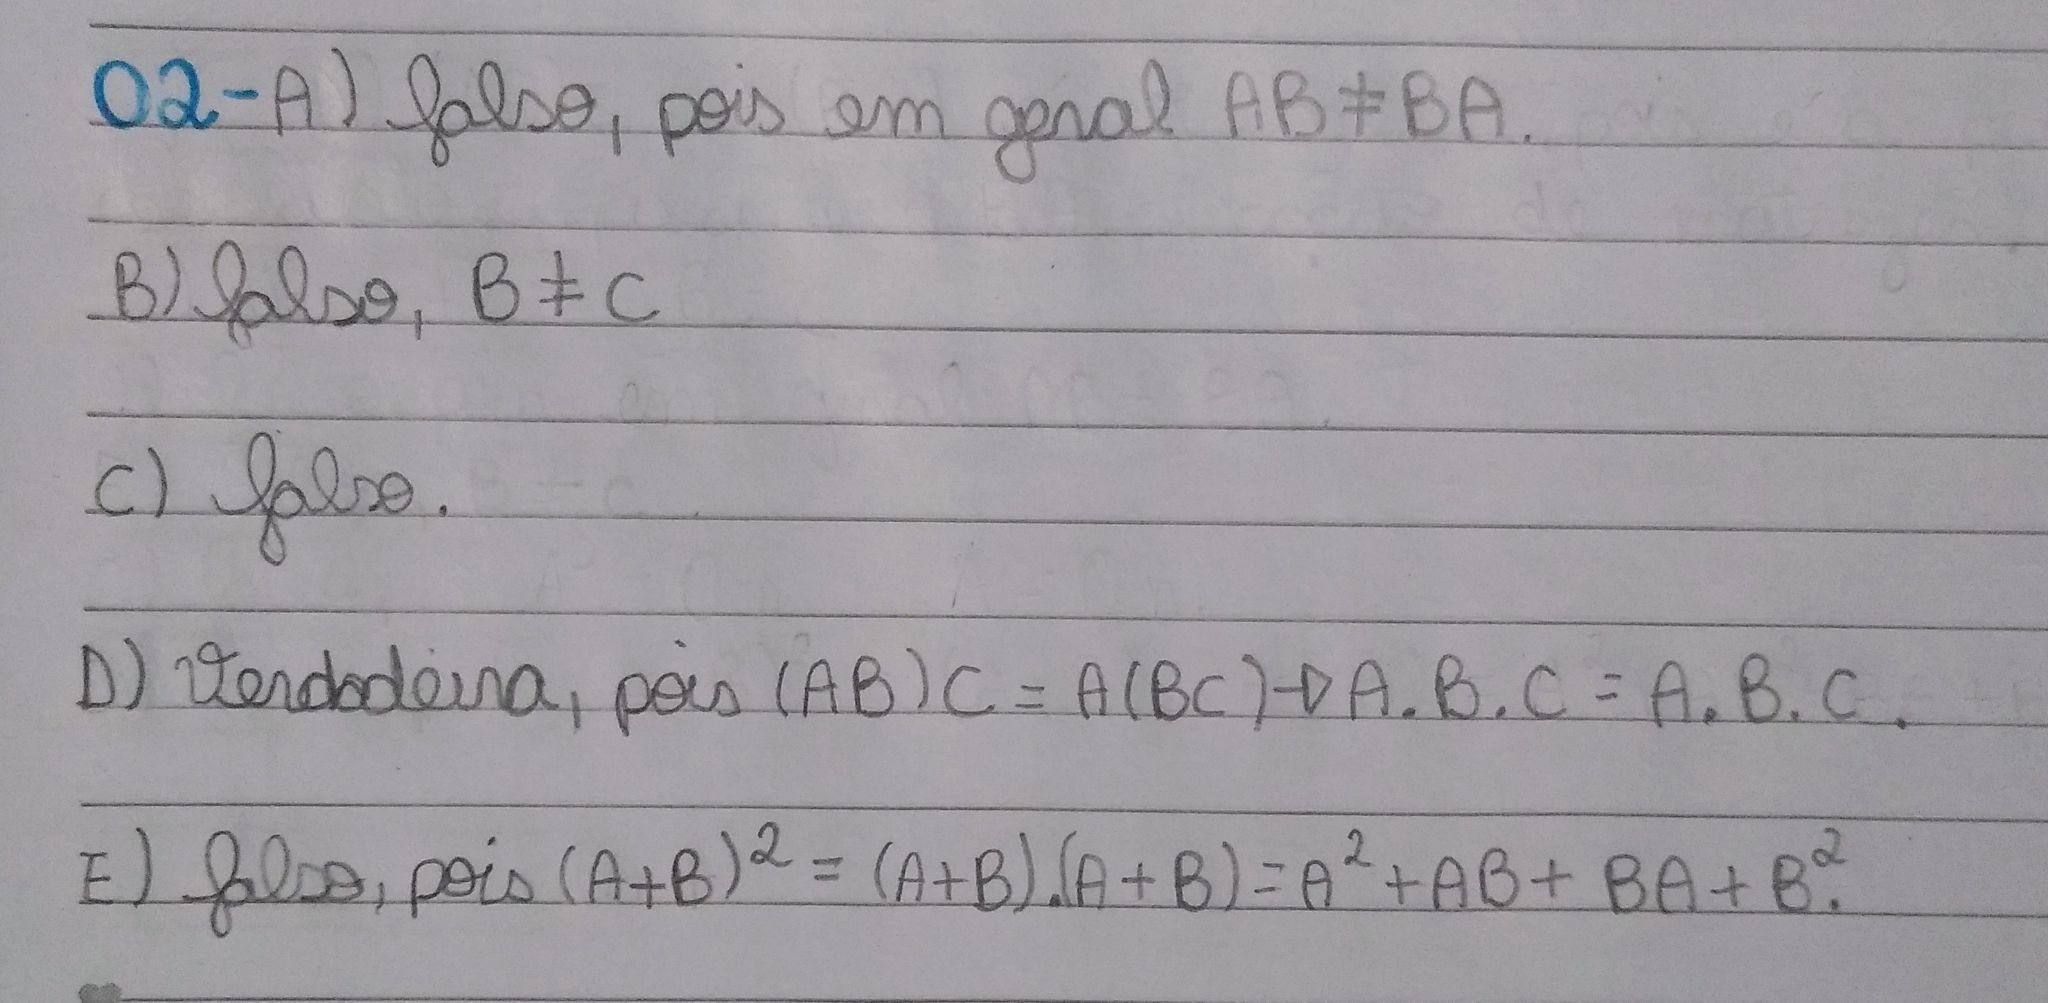 02-A) falso, pois em geral AB ≠ BA.
B) falso, B ≠ C
C) falso.
D) Verdadeira, pois (AB)C = A(BC) → A.B.C = A.B.C.
E) falso, pois (A+B)² = (A+B).(A+B) = A² + AB + BA + B².